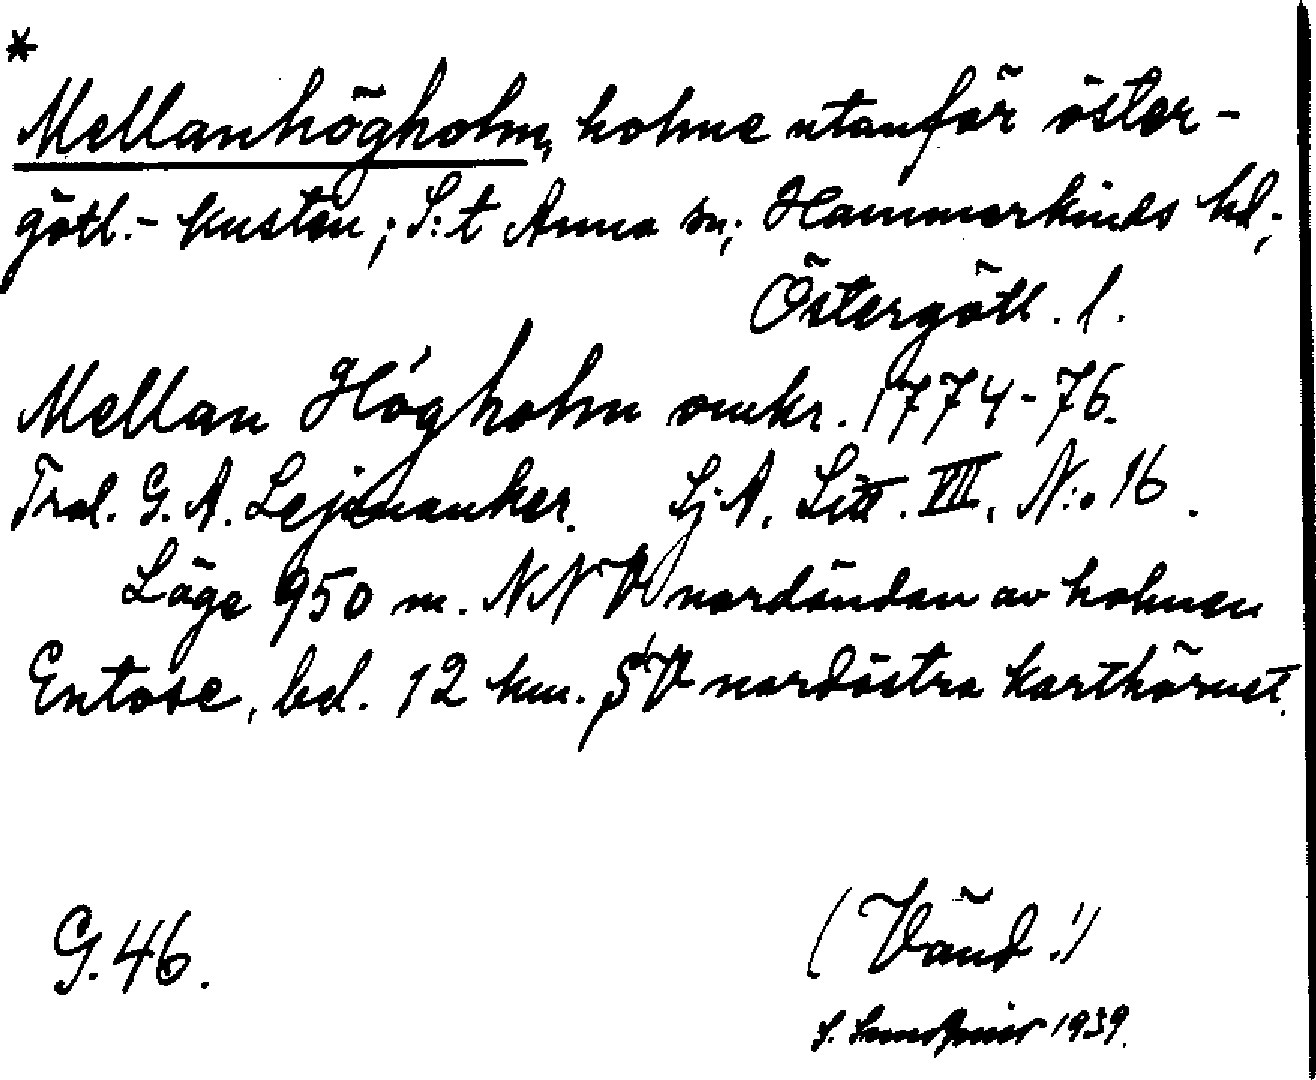 *
Mellanhögholm, holme utanför öster-
götl.- kusten; S:t Anna sn; Hammarkinds hd;
Östergötl. l.
Mellan Högholm omkr. 1774-76.
Trol. G. A. Lejonanker. Sj A. Litt. VIII. N:o 16.
Läge 950 m. NNV nordändan av holmen
Entose, bel. 12 km. SV nordöstra karthörnet.
G. 46.
(Vänd!)
S. 1939.